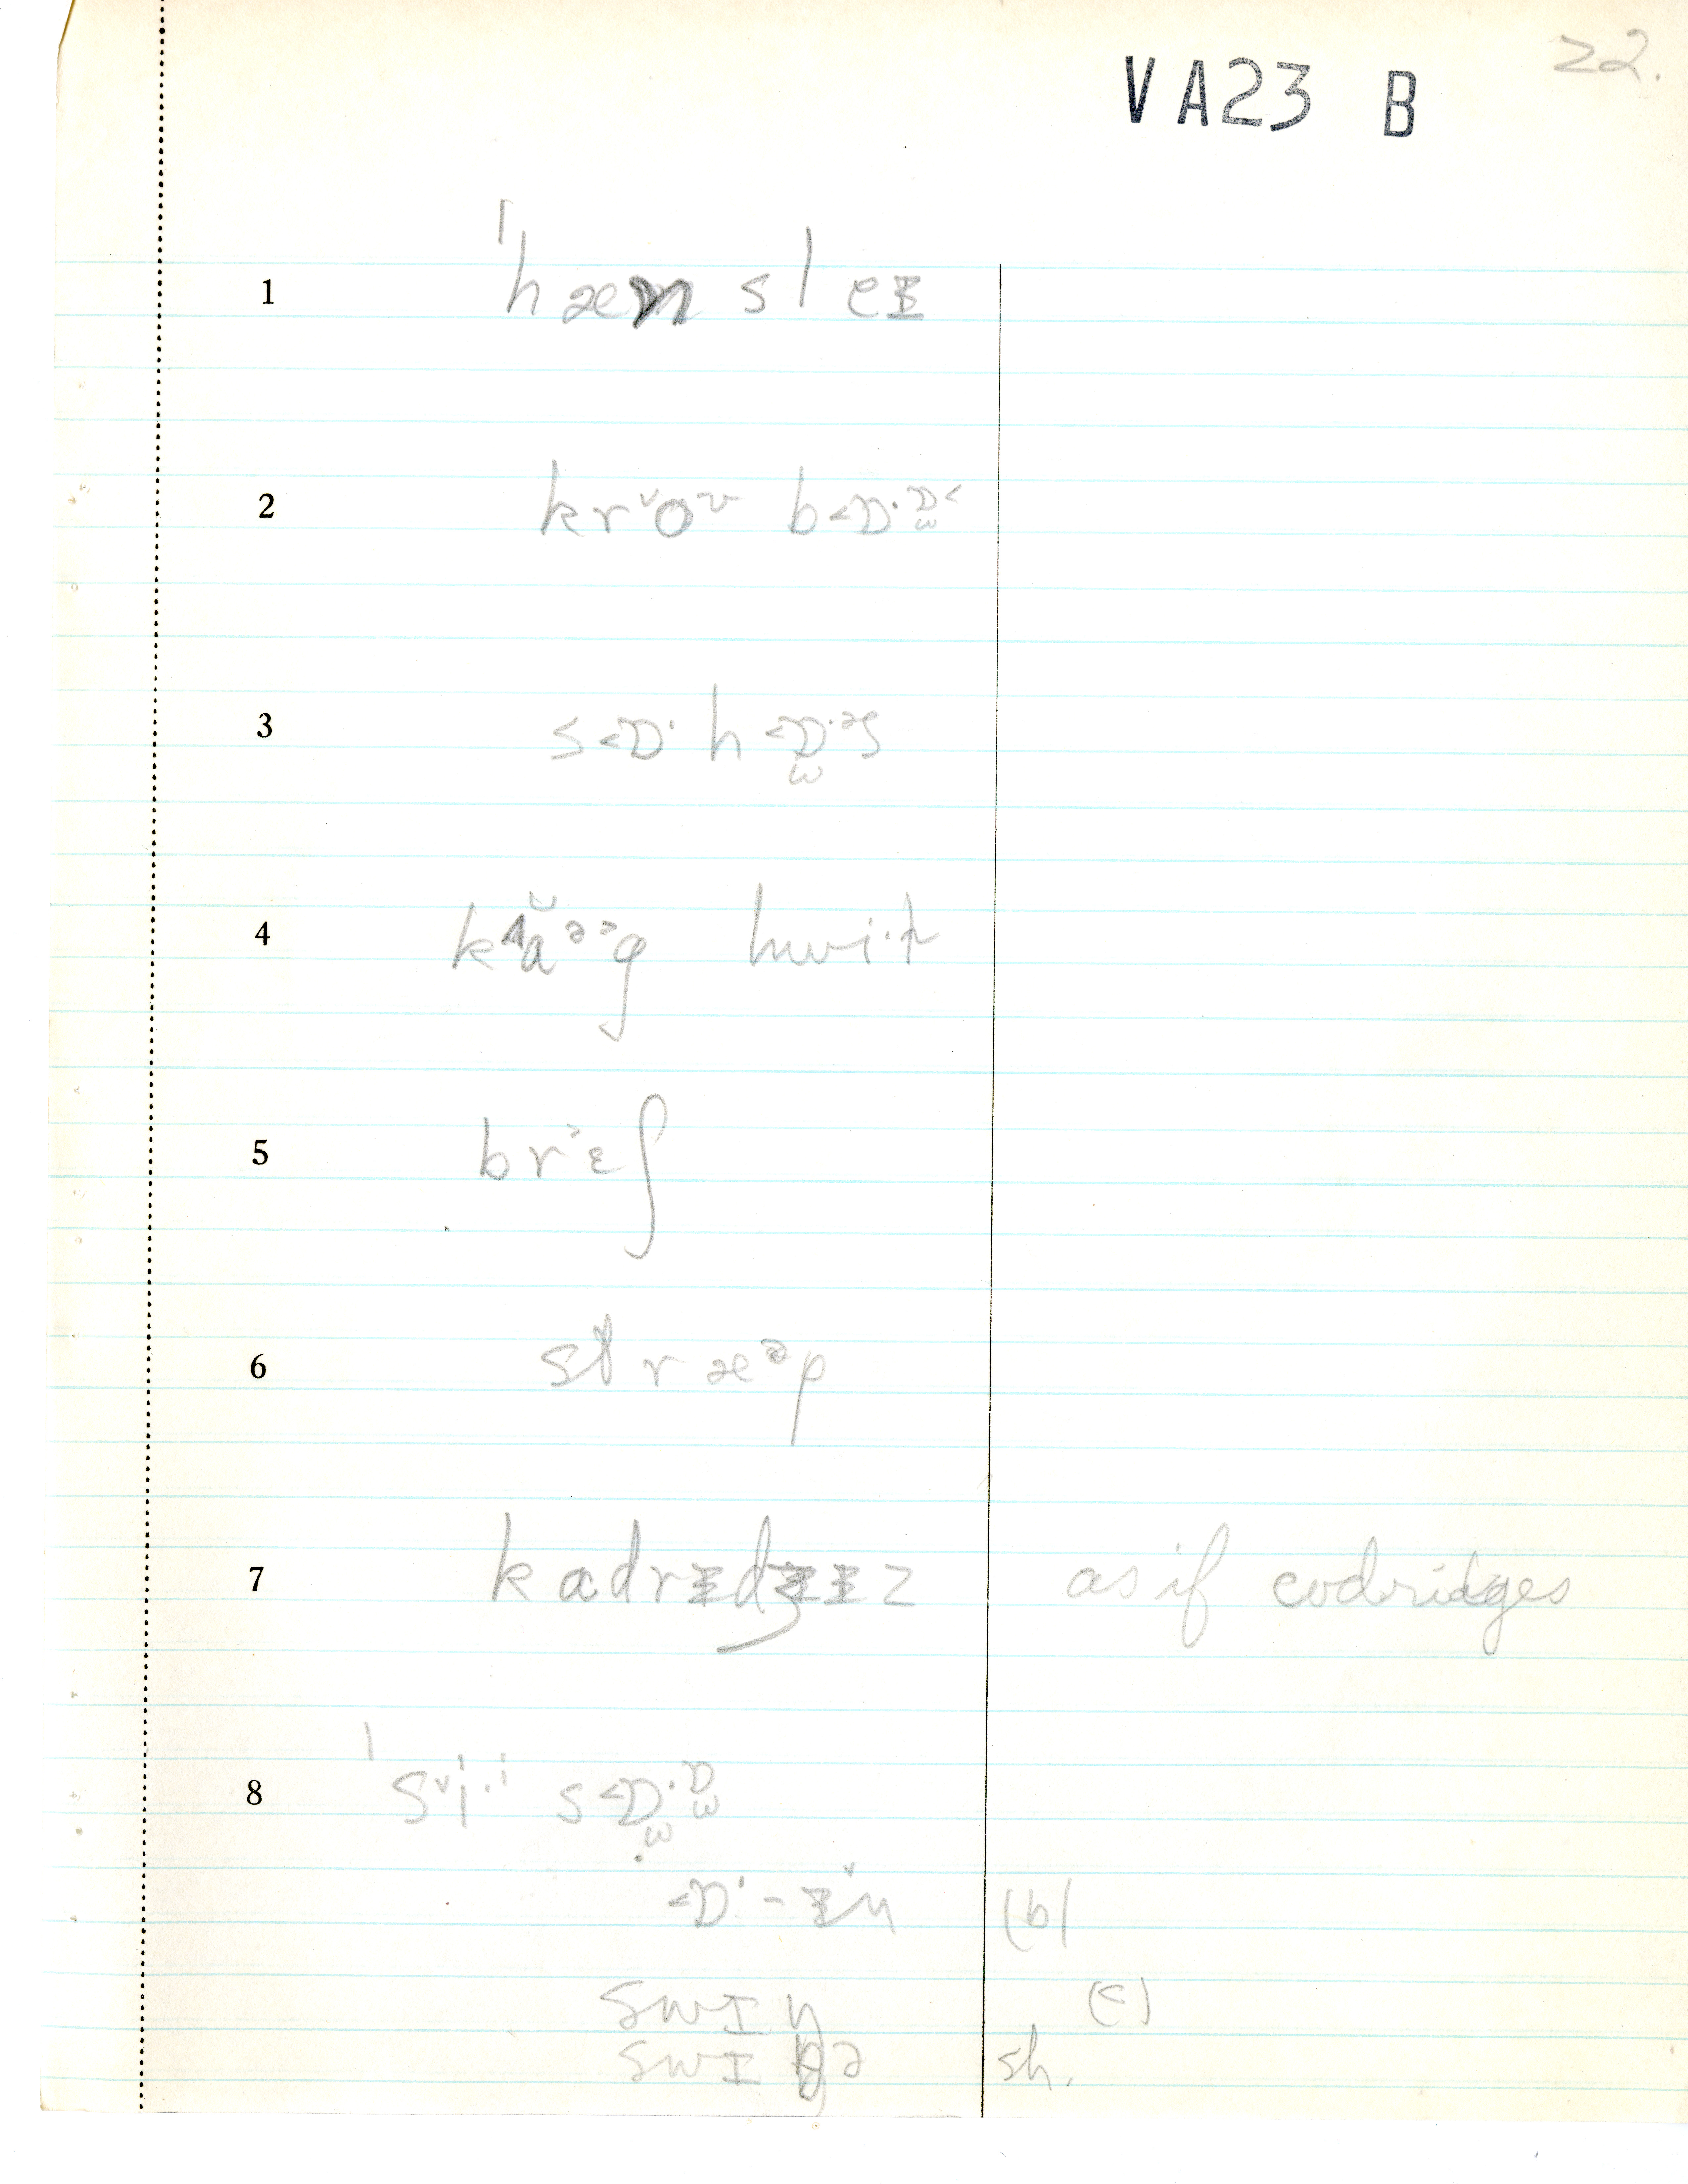 22.
VA23 B
1 ˈhæm sleᵻ
2 krᵛoᵛ b<ɒ·ɒ̫<
3 s<ɒ· h<ɒ̫·ᵊs
4 kᴧă ᵊ˃g hwi·t
5 br˃ɛʃ
6 stræᵊp
7 kadrᵻdʒᵻz as if codridges
8 ˈsᵛi·ⁱ s<ɒ̫·ɒ̫
<ɒ· - ᵻᵛn (b)
swɪŋ (c)
swɪŋə sh.